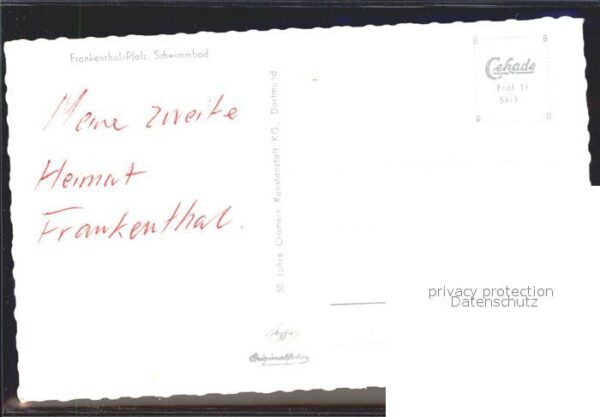 Frankenthal/Pfalz. Schwimmbad
Meine zweite
Heimat
Frankenthal.
50 Jahre Cramers Kunstanstalt KG, Dortmund
B B
Cekade
Frat 15
R B
privacy protection
Datenschutz
Agfa
Originalfoto